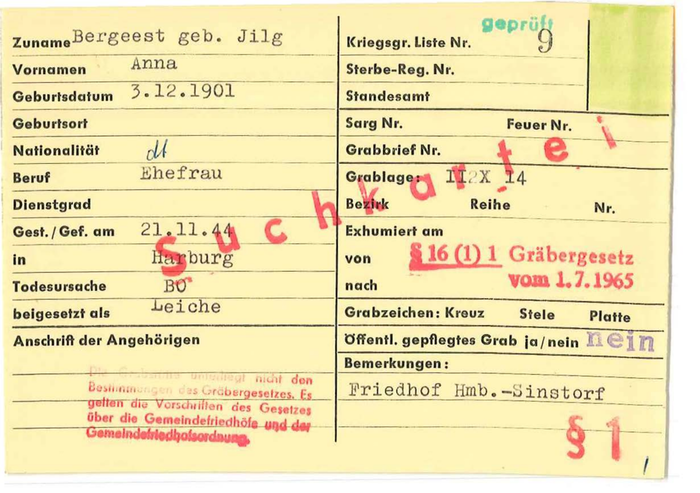 geprüft
Zuname Bergeest geb. Jilg
Vornamen Anna
Geburtsdatum 3.12.1901
Geburtsort
Nationalität dt
Beruf Ehefrau
Dienstgrad
Gest./Gef. am 21.11.44
in Harburg
Todesursache BO
beigesetzt als Leiche
Anschrift der Angehörigen
Die Grabstätte unterliegt nicht den
Bestimmungen des Gräbergesetzes. Es
gelten die Vorschriften des Gesetzes
über die Gemeindefriedhöfe und der
Gemeindefriedhofsordnung.
Suchkartei
Kriegsgr. Liste Nr. 9
Sterbe-Reg. Nr.
Standesamt
Sarg Nr. Feuer Nr.
Grabbrief Nr.
Grablage: 14
Bezirk Reihe Nr.
Exhumiert am
von § 16 (1) 1 Gräbergesetz
nach vom 1.7.1965
Grabzeichen: Kreuz Stele Platte
Öffentl. gepflegtes Grab ja/nein nein
Bemerkungen:
Friedhof Hmb.-Sinstorf
§ 1
1